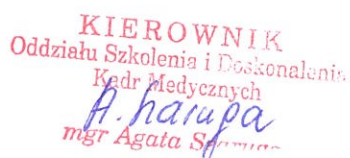 KIEROWNIK
Oddziału Szkolenia i Doskonalenia
Kadr Medycznych
mgr Agata